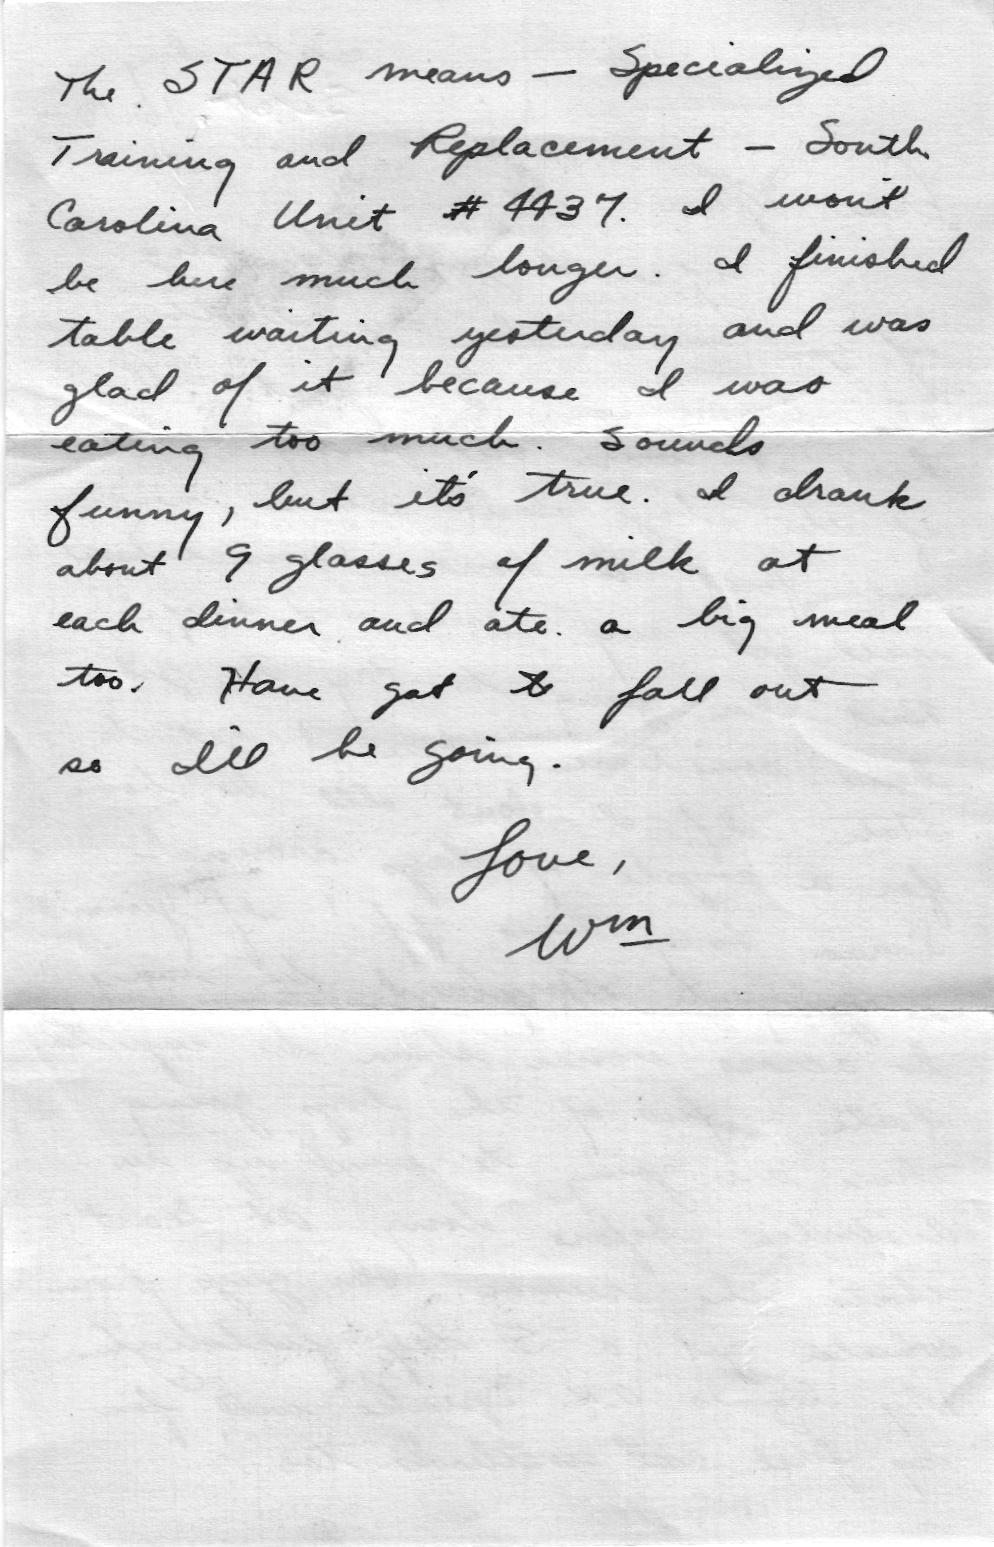 The STAR means — Specialized
Training and Replacement — South
Carolina Unit # 4437. I won't
be here much longer. I finished
table waiting yesterday and was
glad of it because I was
eating too much. Sounds
funny, but it's true. I drank
about 9 glasses of milk at
each dinner and ate a big meal
too. Have got to fall out
so I'll be going.
Love,
Wm